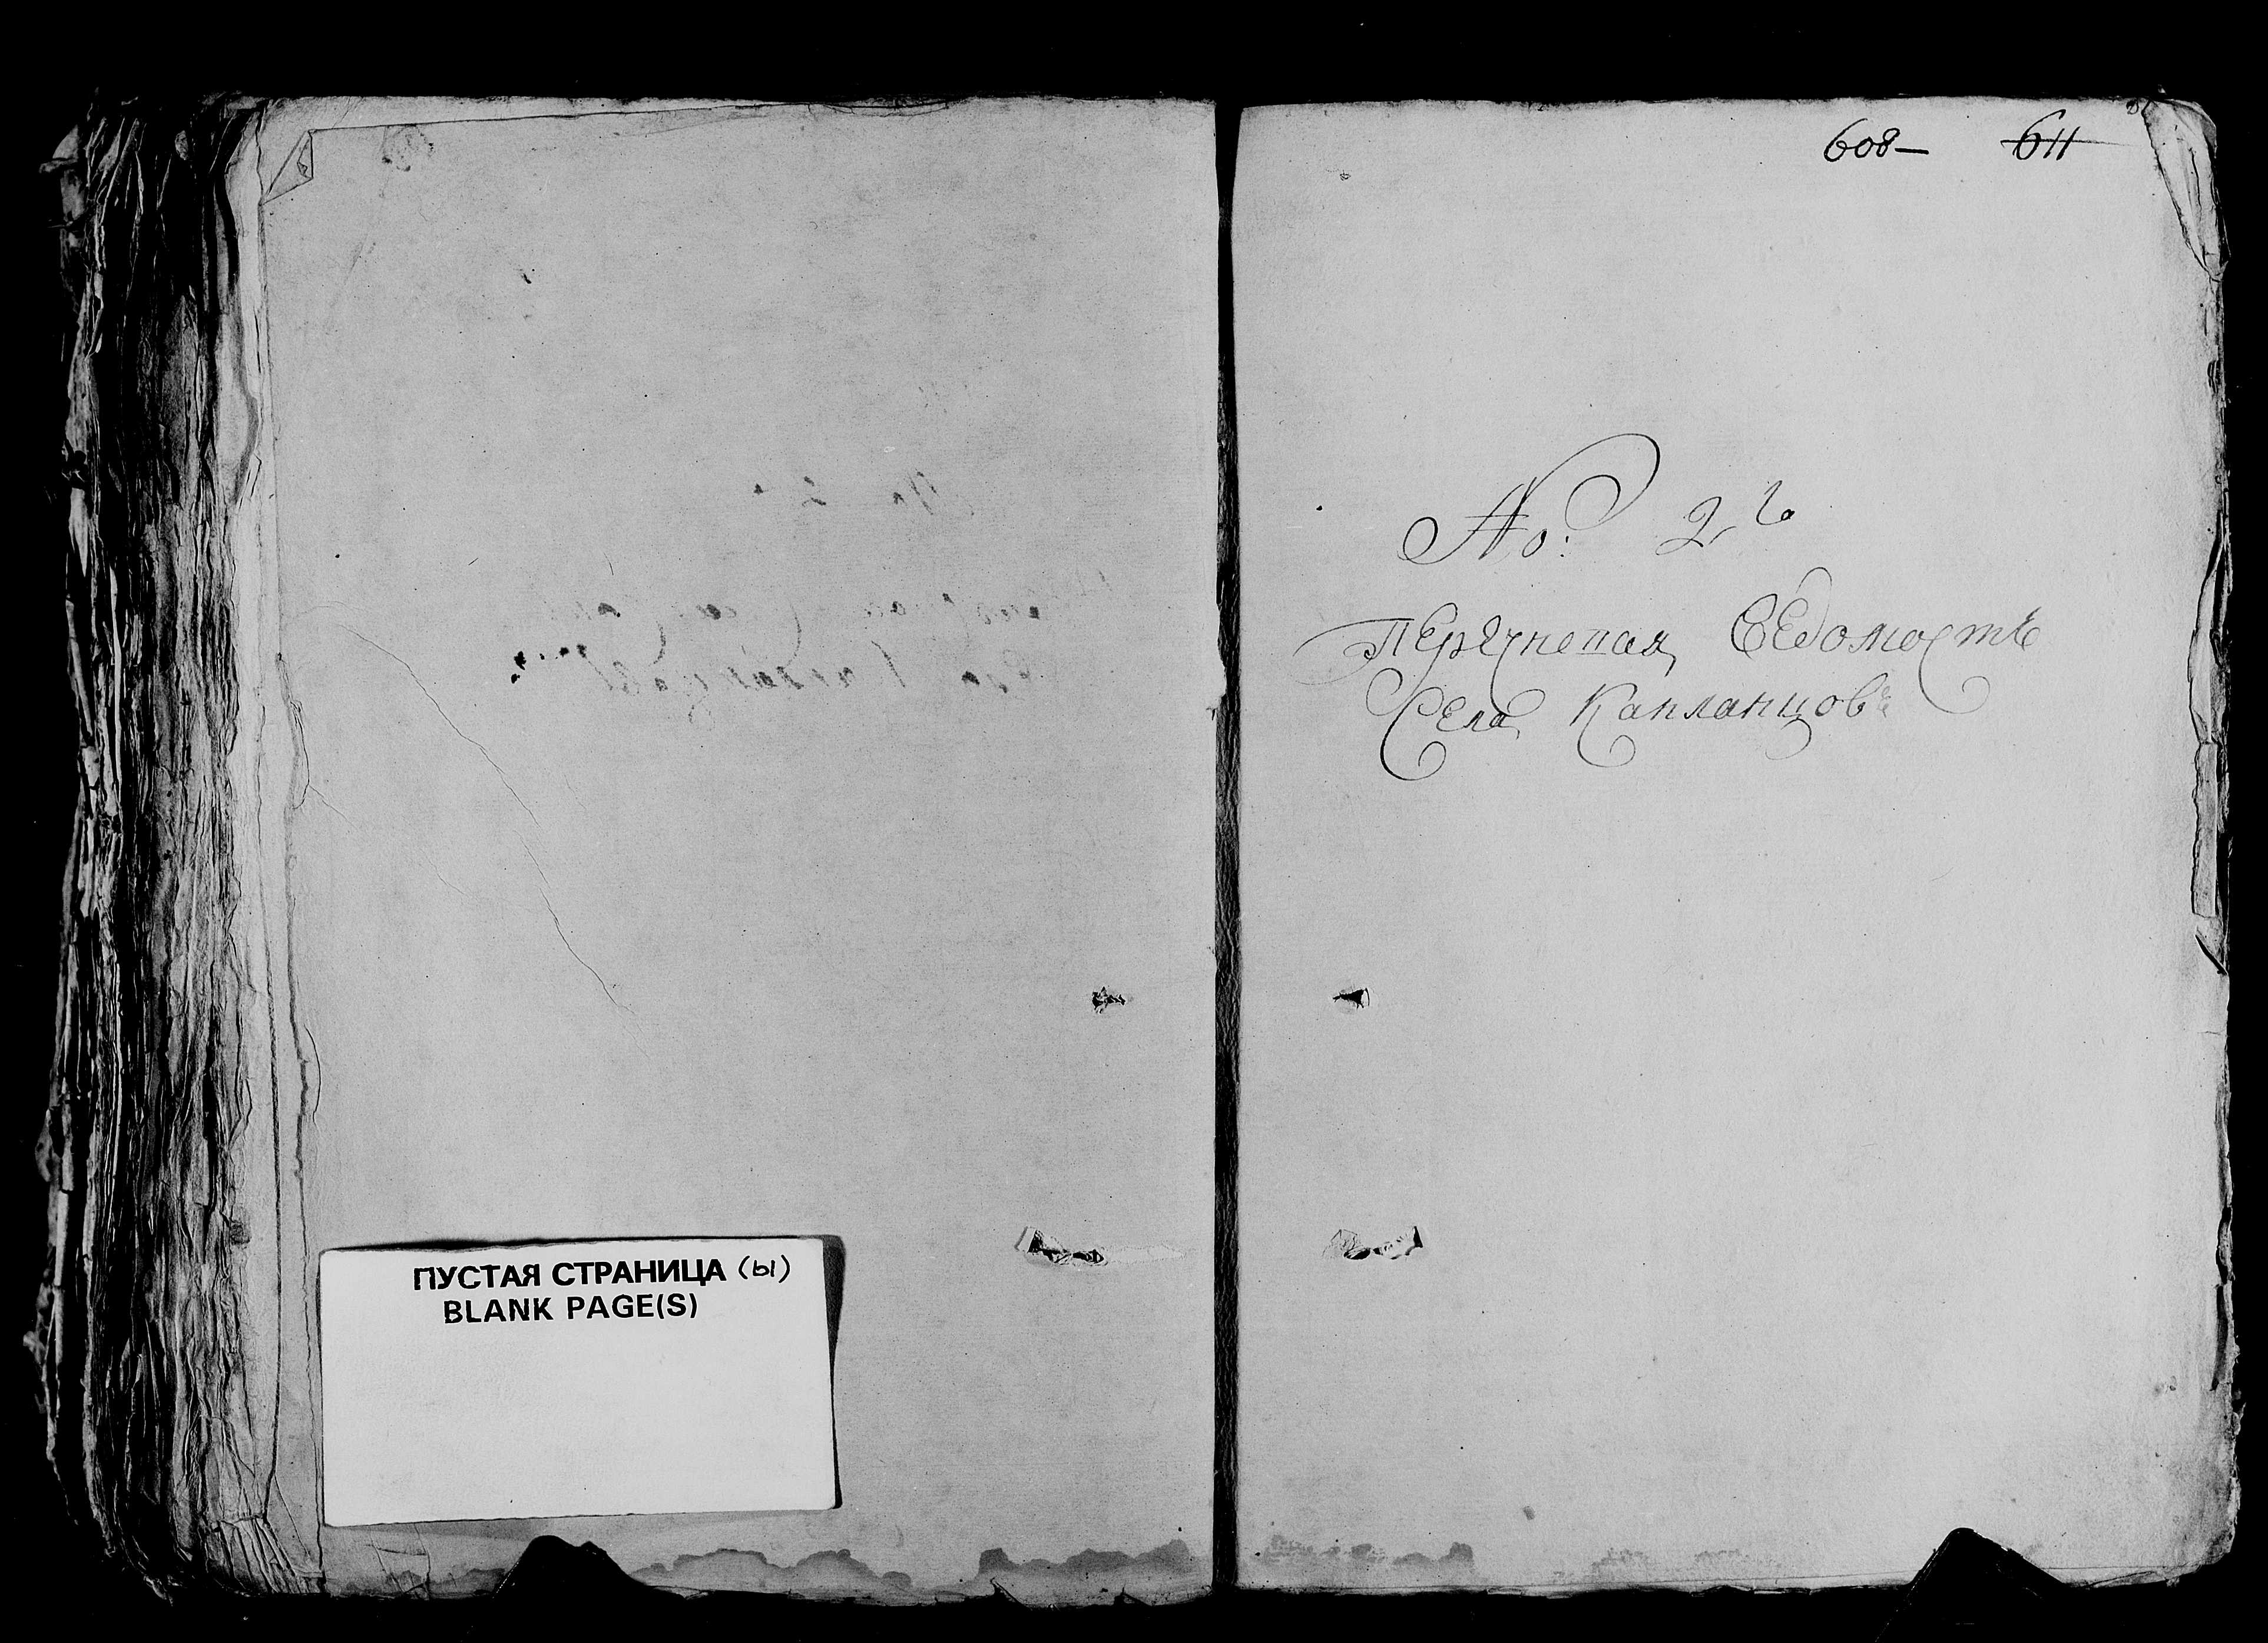 ПУСТАЯ СТРАНИЦА (ы)
BLANK PAGE(S)
608— 611
No: 2й
Перечневая Ведомость
Села Капланцовъ